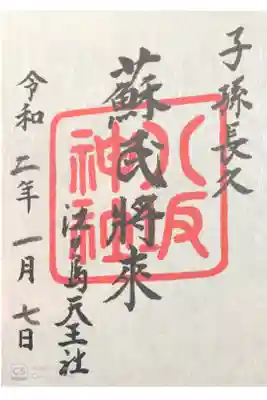 子孫長久
蘇民將来
八坂神社
江ノ島天王社
令和二年一月七日
CS